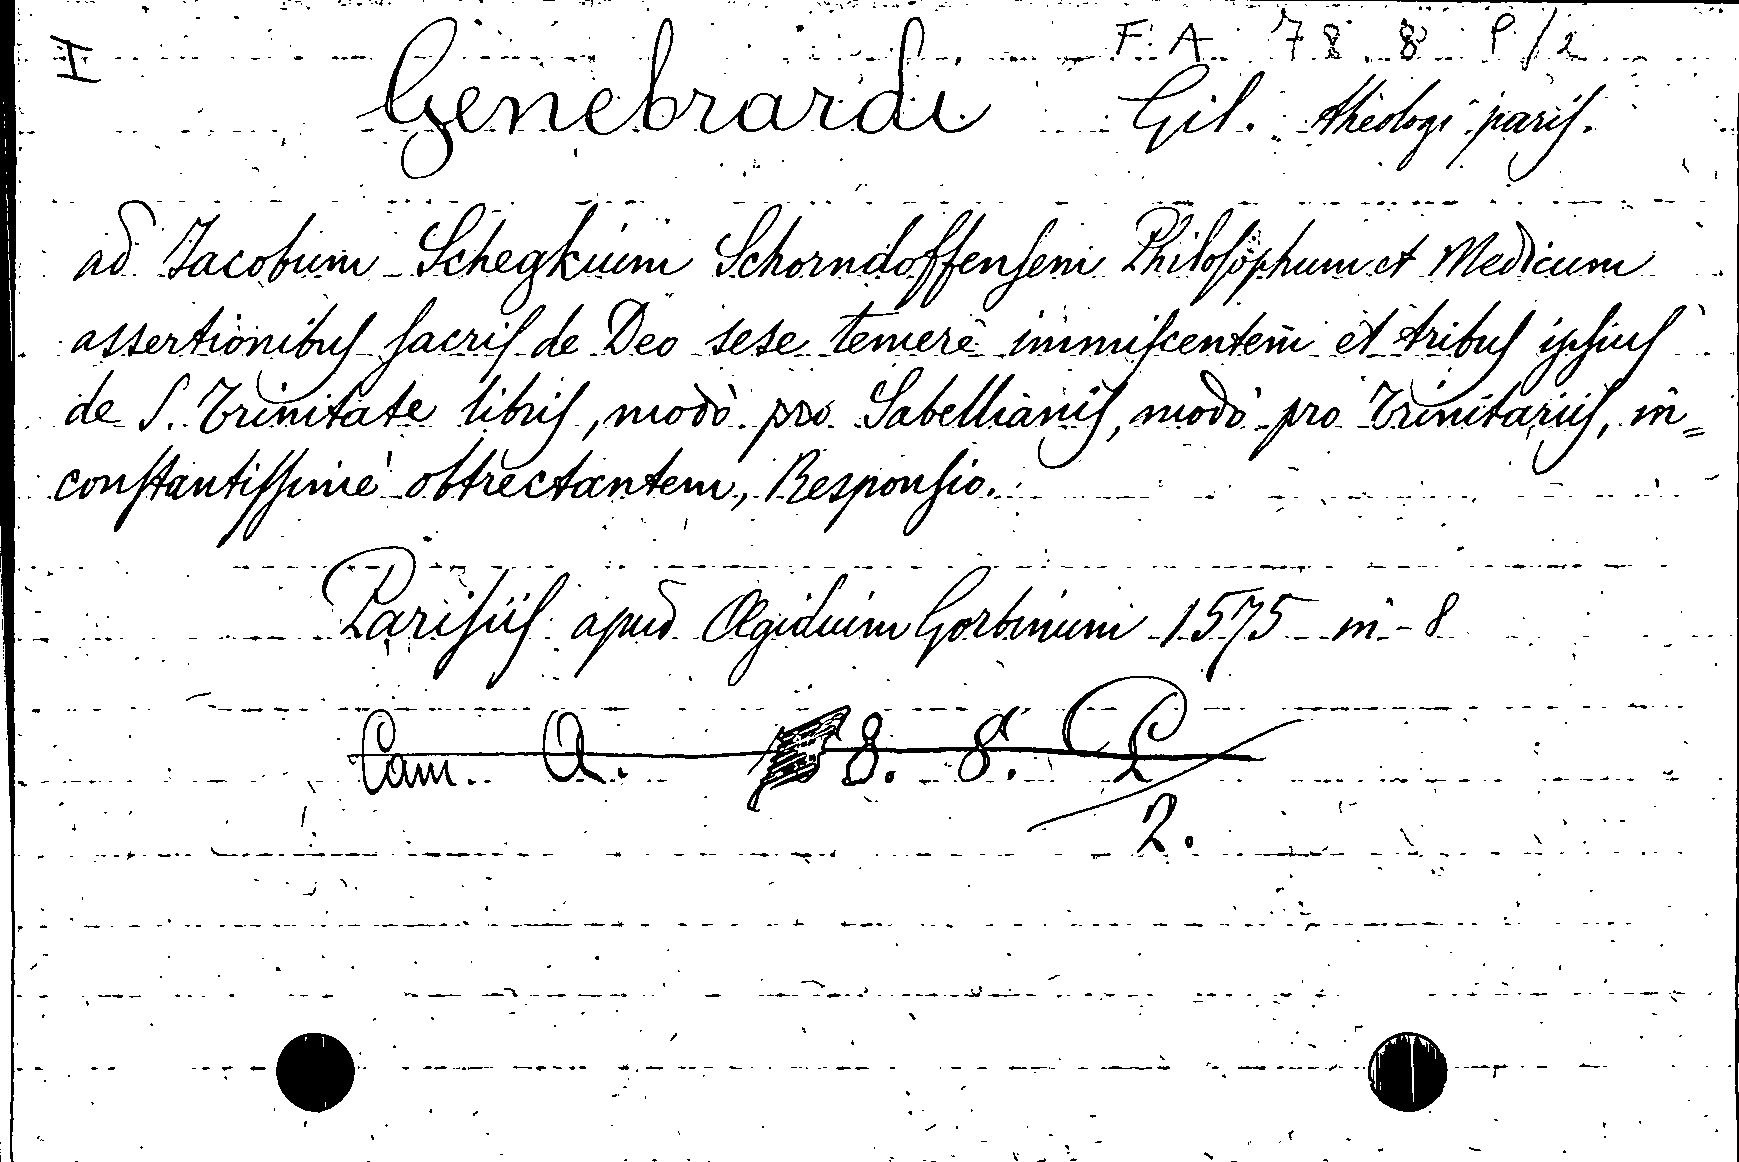 I
F. A 78. 8 P/2
Genebrardi Gil. theologi paris.
ad Jacobum Schegkium Schorndoffensem Philosophum et Medicum
assertionibus sacris de Deo sese temerè immiscentem et tribus ipsius
de S. Trinitate libris, modò pro Sabellianis, modò pro Trinitariis, in=
constantissimè obtrectantem, Responsio.
Parisiis apud Ægidium Gorbinum 1575 in-8
Cam. A. 8. 8. P/2.